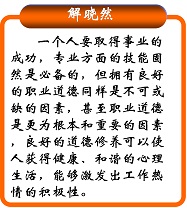 解晓然
一个人要取得事业的
成功，专业方面的技能固
然是必备的，但拥有良好
的职业道德同样是不可或
缺的因素，甚至职业道德
是更为根本和重要的因素
，良好的道德修养可以使
人获得健康、和谐的心理
生活，能够激发出工作热
情的积极性。